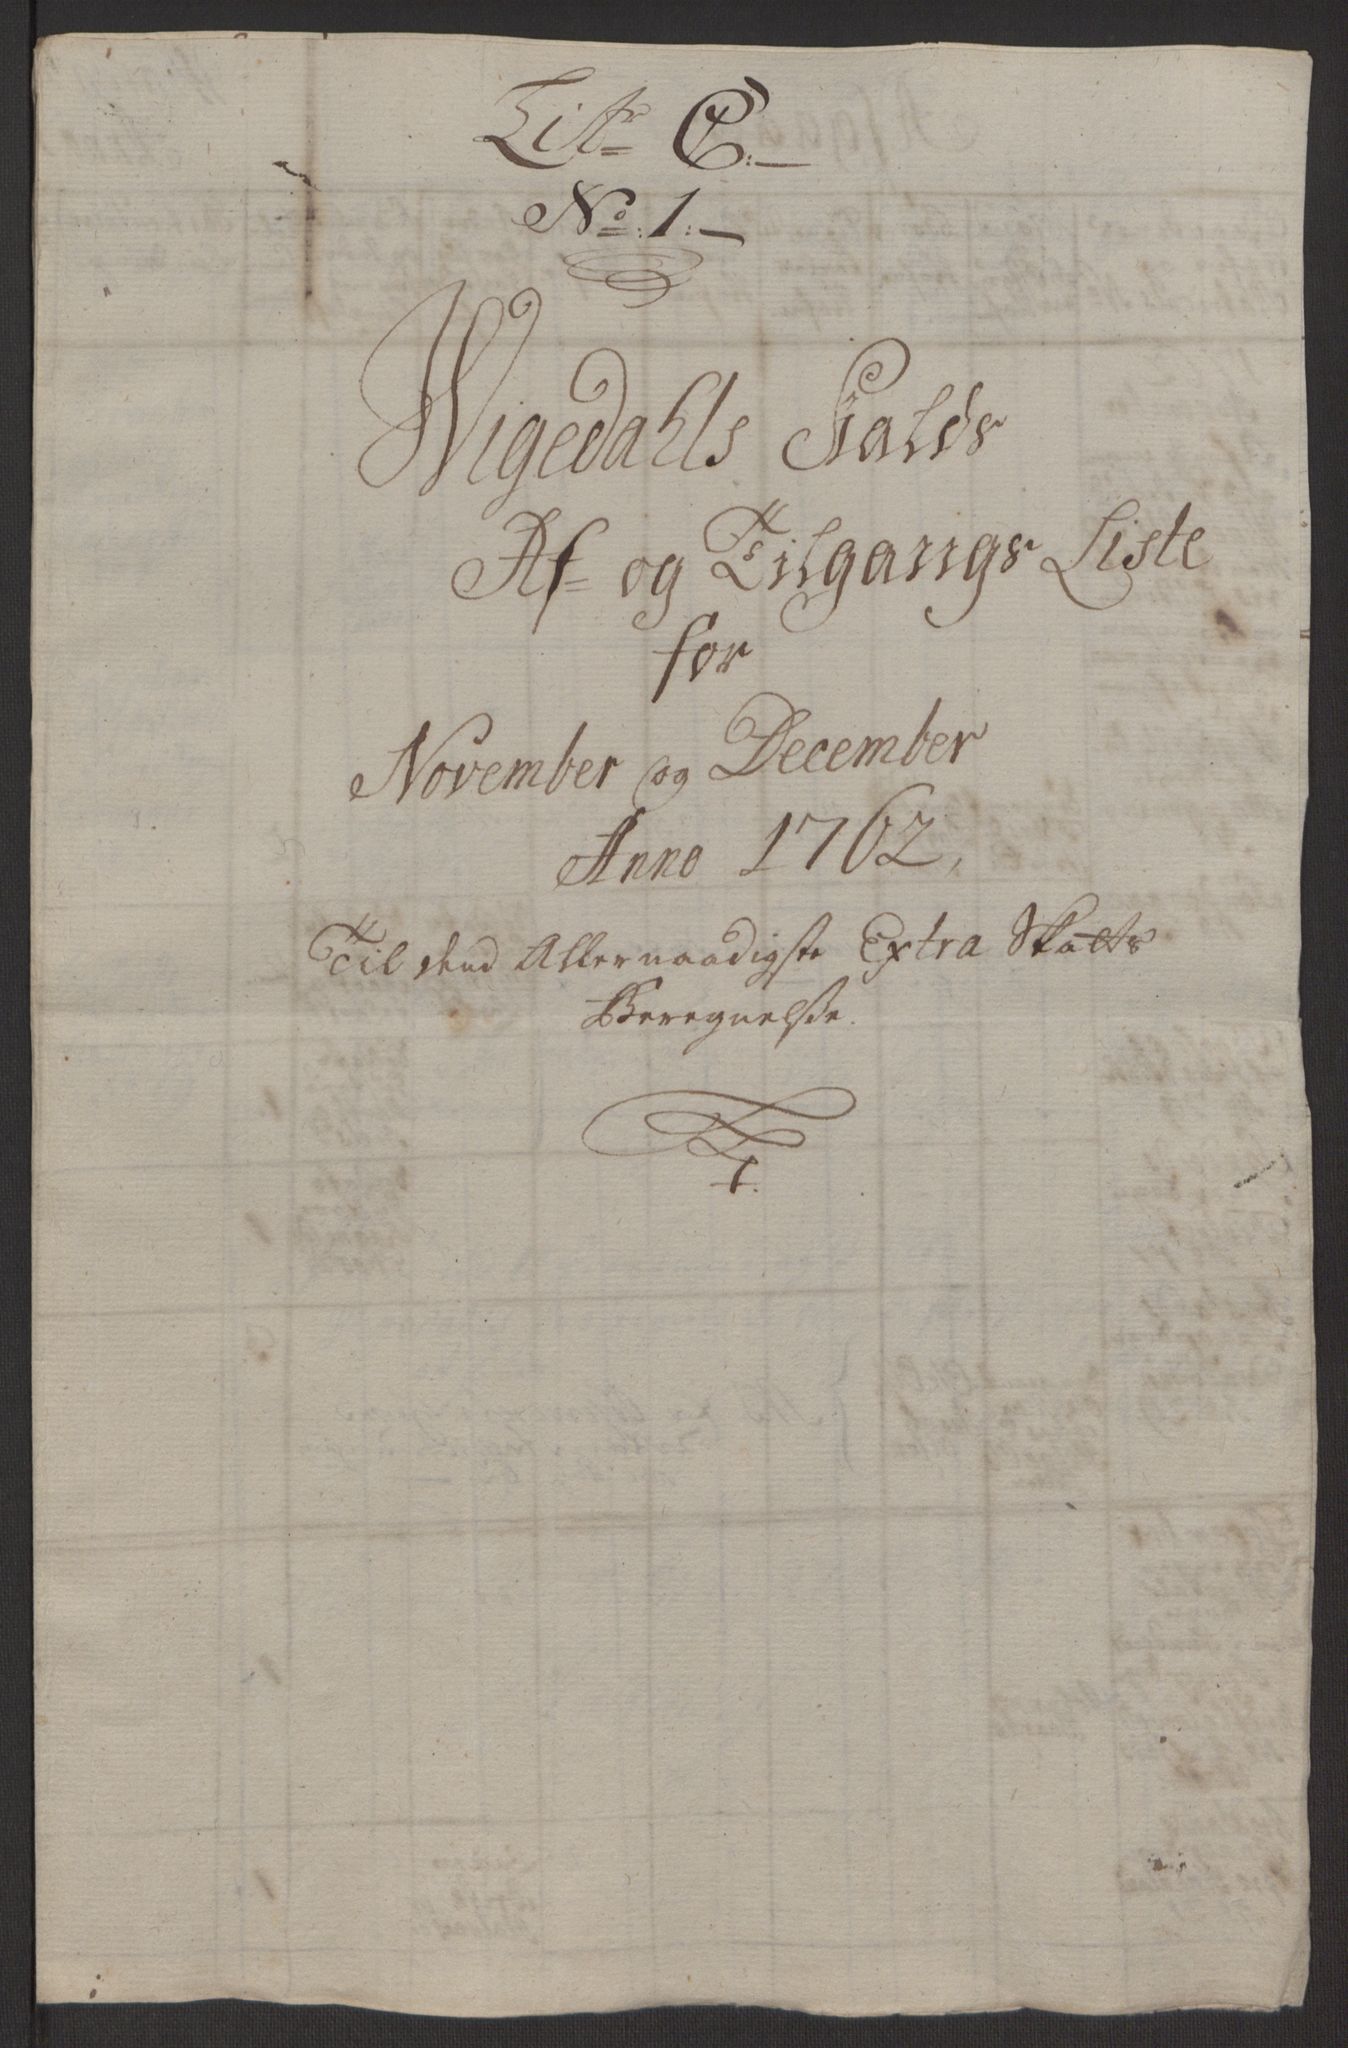 Litr C:
No: 1:
Wigedahls Gialds
Af- og Tilgangs Liste
for
November og December
Anno 1762,
Til dend Allernaadigste Extra Skatts
Beregnelsse.